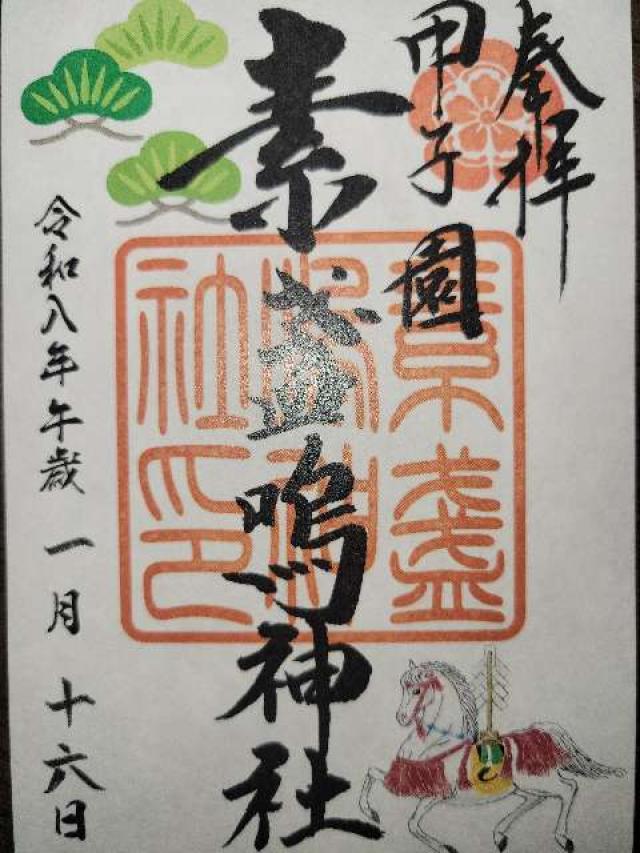 奉拝
甲子園
素盞嗚神社
素盞
嗚神
社印
令和八年午歳 一月 十六日